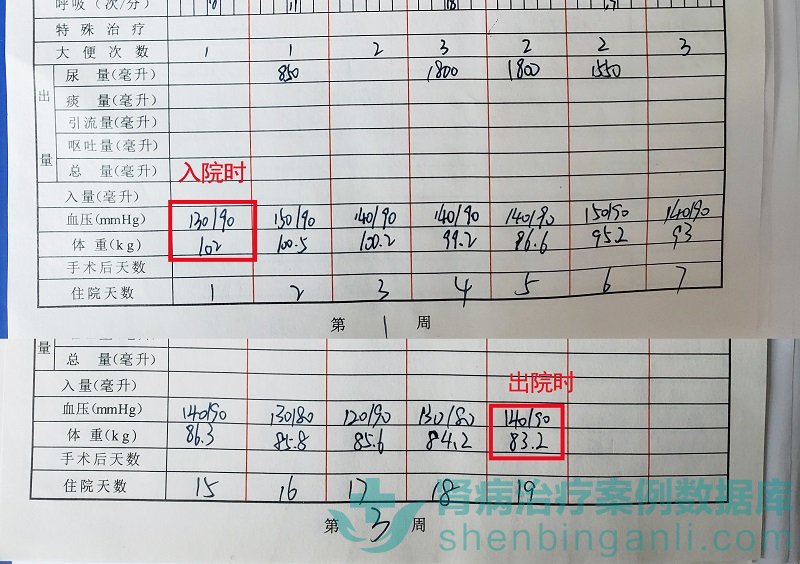 呼吸(次/分)
特殊治疗
大便次数 1 1 2 3 2 2 3
出量
尿 量(毫升) 850 1800 1800 1550
痰 量(毫升)
引流量(毫升)
呕吐量(毫升)
总 量(毫升)
入院时
入量(毫升)
血压(mmHg) 130/90 150/90 140/90 140/90 140/90 150/90 140/90
体 重(kg) 102 100.5 100.2 99.2 96.6 95.2 93
手术后天数
住院天数 1 2 3 4 5 6 7
第 1 周
量
总 量(毫升)
入量(毫升)
出院时
血压(mmHg) 140/90 130/80 120/90 130/80 140/90
体 重(kg) 86.3 85.8 85.6 84.2 83.2
手术后天数
住院天数 15 16 17 18 19
第 3 周
肾病治疗案例数据库
shenbinganli.com